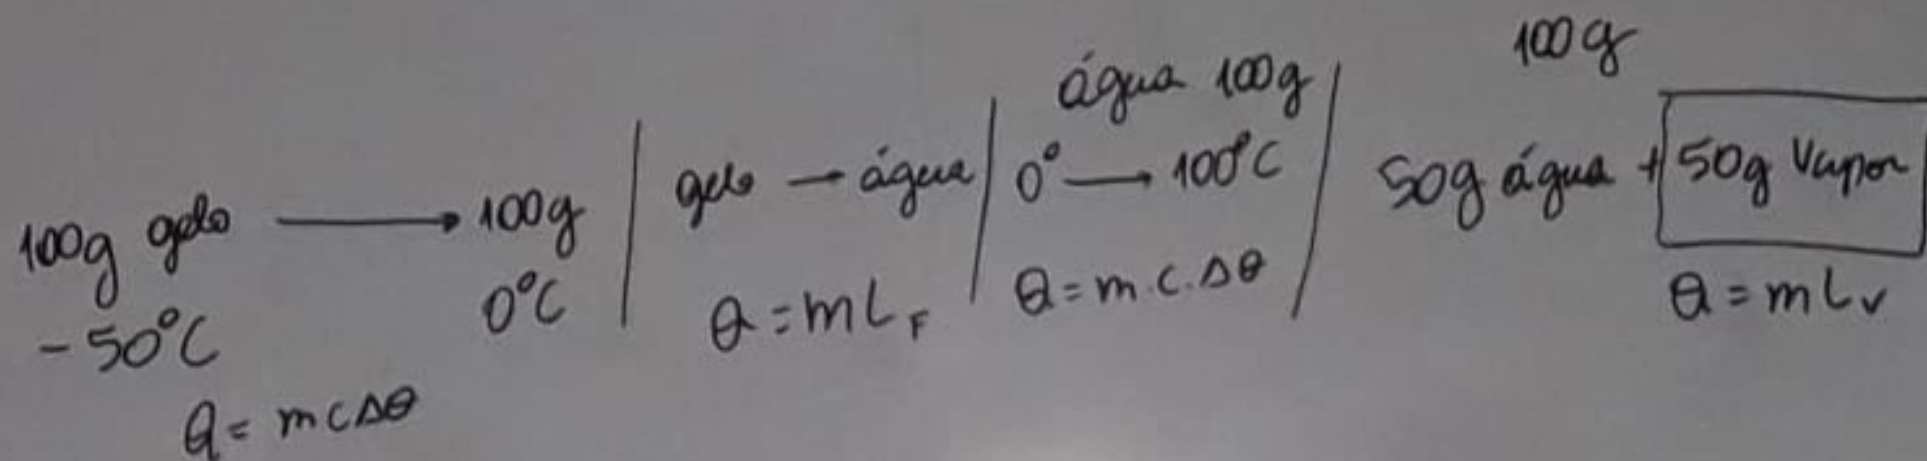 100g gelo → 100g
-50°C 0°C
Q = mcΔθ
gelo → água
Q = mL_F
água 100g
0° → 100°C
Q = m.c.Δθ
100g
50g água + 50g Vapor
Q = mLv